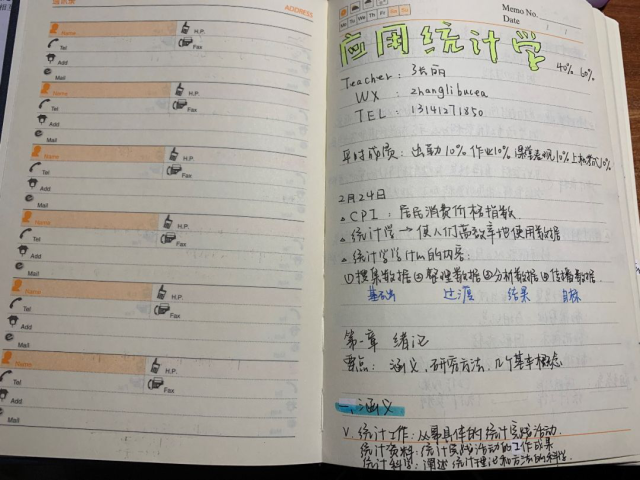 ADDRESS
Name H.P.
Tel Fax
Add
Mail
Name H.P.
Tel Fax
Add
Mail
Name H.P.
Tel Fax
Add
Mail
Name H.P.
Tel Fax
Add
Mail
Name H.P.
Tel Fax
Add
Mail
Name H.P.
Tel Fax
Add
Mail
Memo No.
Tu We Th Fr Sa Su
Date / /
应用统计学
40% 60%
Teacher: 张丽
WX: zhanglibucea
TEL: 13141271850
平时成绩: 出勤10% 作业10% 课堂表现10% 上机考试10%
2月24日
CPI: 居民消费价格指数
统计学→使人们高效率地使用数据
统计学学什么的内容:
①搜集数据②整理数据③分析数据④传播数据.
基础 过渡 结果 目标
第一章 绪论
要点: 涵义、研究方法、几个基本概念
一、涵义
V. 统计工作: 从事具体的统计实践活动.
统计资料: 统计实践活动的工作成果
统计科学: 阐述统计理论和方法的科学.